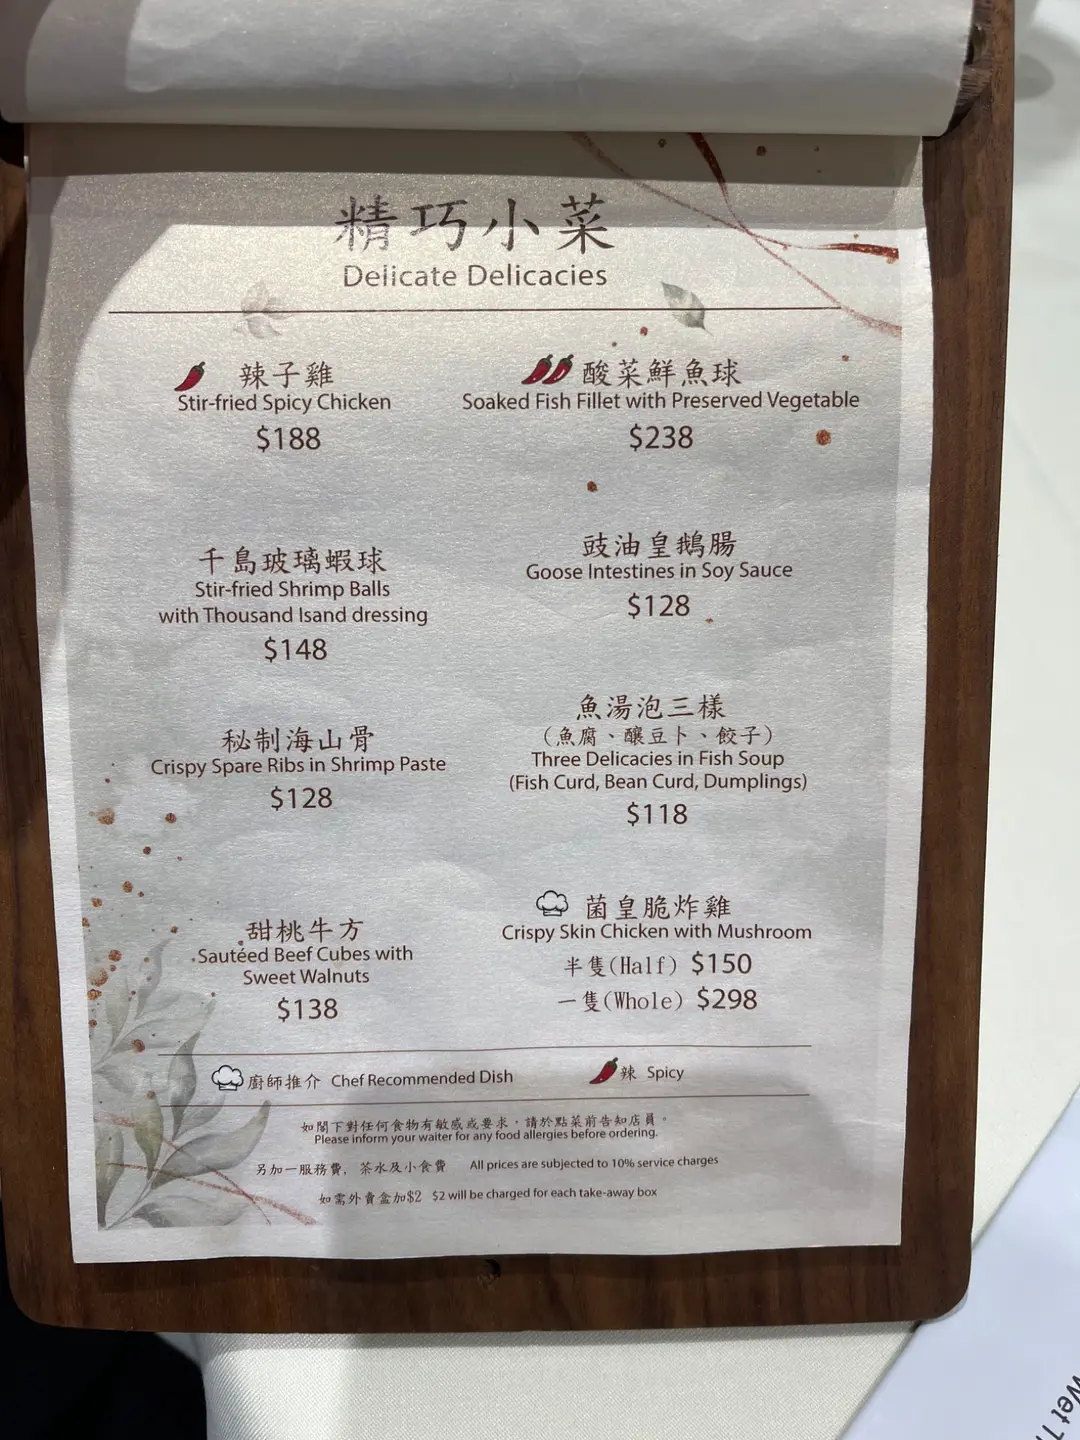 精巧小菜
Delicate Delicacies
辣子雞
Stir-fried Spicy Chicken
$188
酸菜鮮魚球
Soaked Fish Fillet with Preserved Vegetable
$238
千島玻璃蝦球
Stir-fried Shrimp Balls
with Thousand Isand dressing
$148
豉油皇鵝腸
Goose Intestines in Soy Sauce
$128
秘制海山骨
Crispy Spare Ribs in Shrimp Paste
$128
魚湯泡三樣
（魚腐、釀豆卜、餃子）
Three Delicacies in Fish Soup
(Fish Curd, Bean Curd, Dumplings)
$118
甜桃牛方
Sautéed Beef Cubes with
Sweet Walnuts
$138
菌皇脆炸雞
Crispy Skin Chicken with Mushroom
半隻(Half) $150
一隻(Whole) $298
廚師推介 Chef Recommended Dish
辣 Spicy
如閣下對任何食物有敏感或要求，請於點菜前告知店員。
Please inform your waiter for any food allergies before ordering.
另加一服務費，茶水及小食費 All prices are subjected to 10% service charges
如需外賣盒加$2 $2 will be charged for each take-away box
Wet